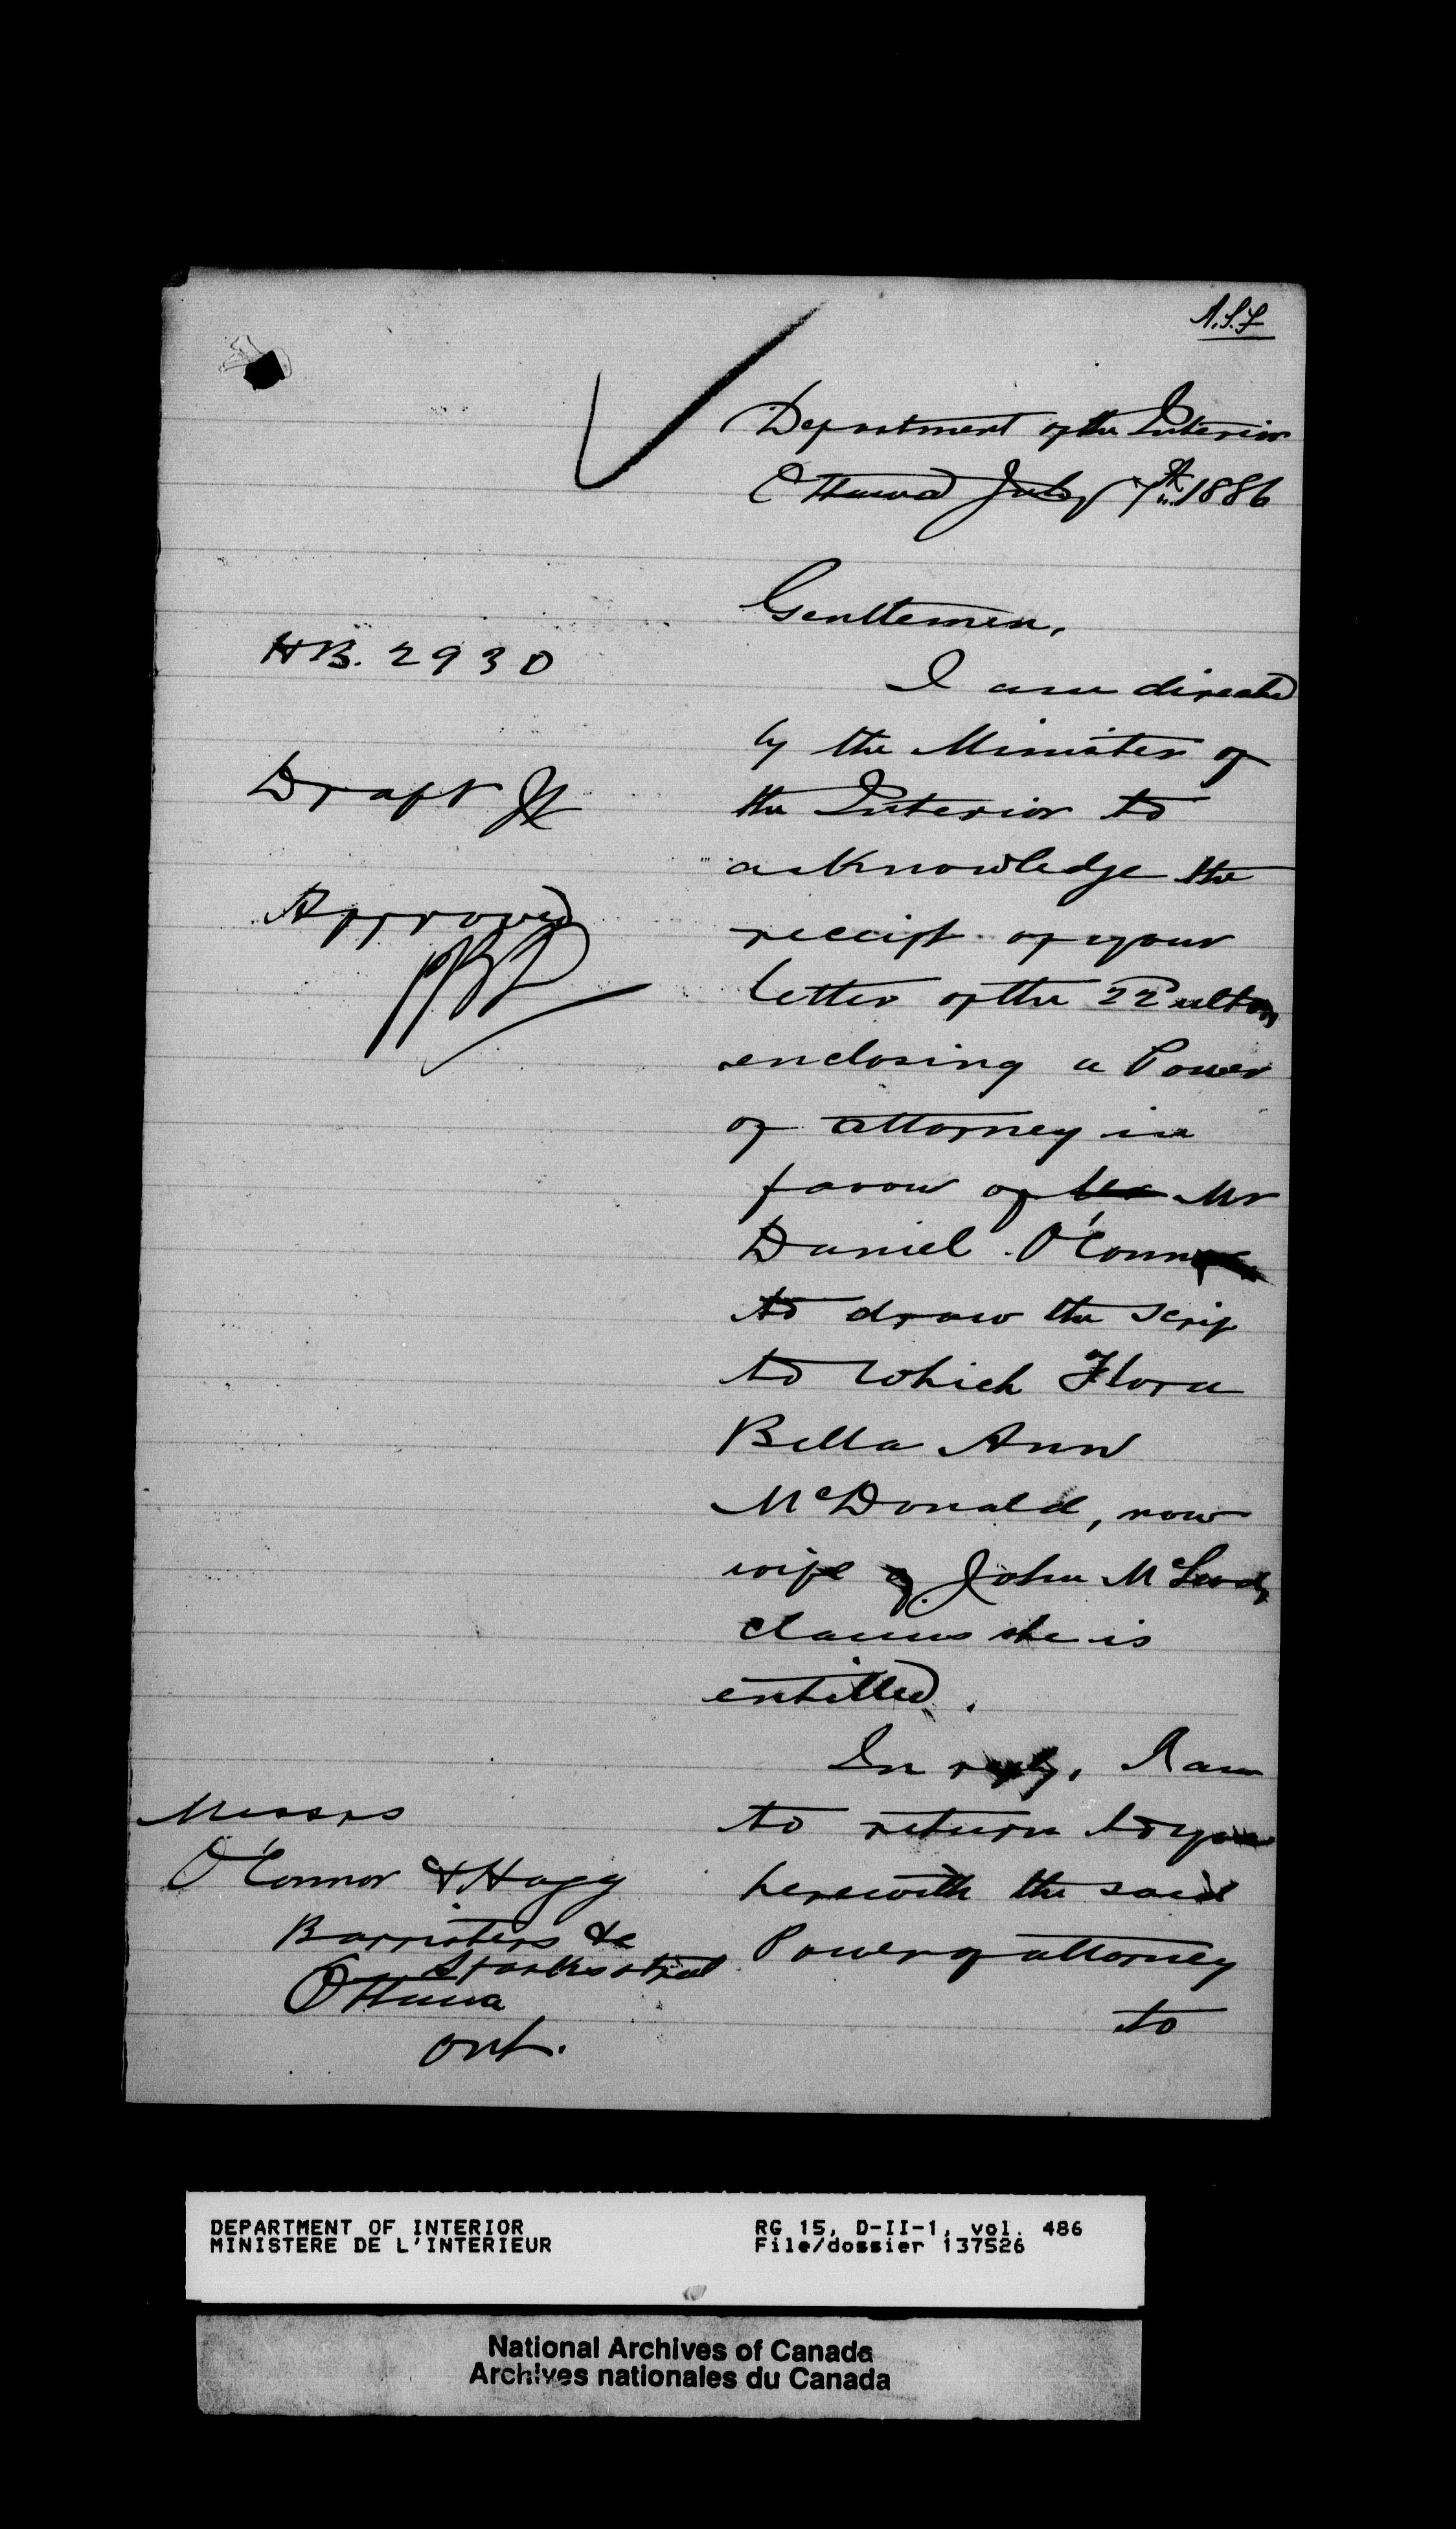 A.S.F
Department of the Interior
Ottawa July 7th 1886
Gentlemen,
HB. 2930
I am directed
by the Minister of
Draft
the Interior to
acknowledge the
Approved
receipt of your
letter of the 22d ulto,
enclosing a Power
of attorney in
favour of Mr
Daniel O'Connor
to draw the scrip
to which Flora
Bella Ann
McDonald, now
wife of John McLeod,
claims she is
entitled.
In reply, I am
to return to you
herewith the said
Power of attorney
to
Messrs
O'Connor & Hogg
Barristers &c
Sparks street
Ottawa
Ont.
DEPARTMENT OF INTERIOR
MINISTERE DE L'INTERIEUR
RG 15, D-II-1, vol. 486
File/dossier 137526
National Archives of Canada
Archives nationales du Canada